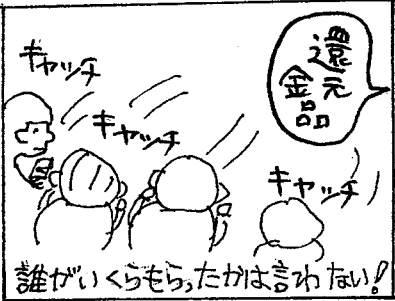 還元
金品
キャッチ
キャッチ
キャッチ
誰がいくらもらったかは言わない!